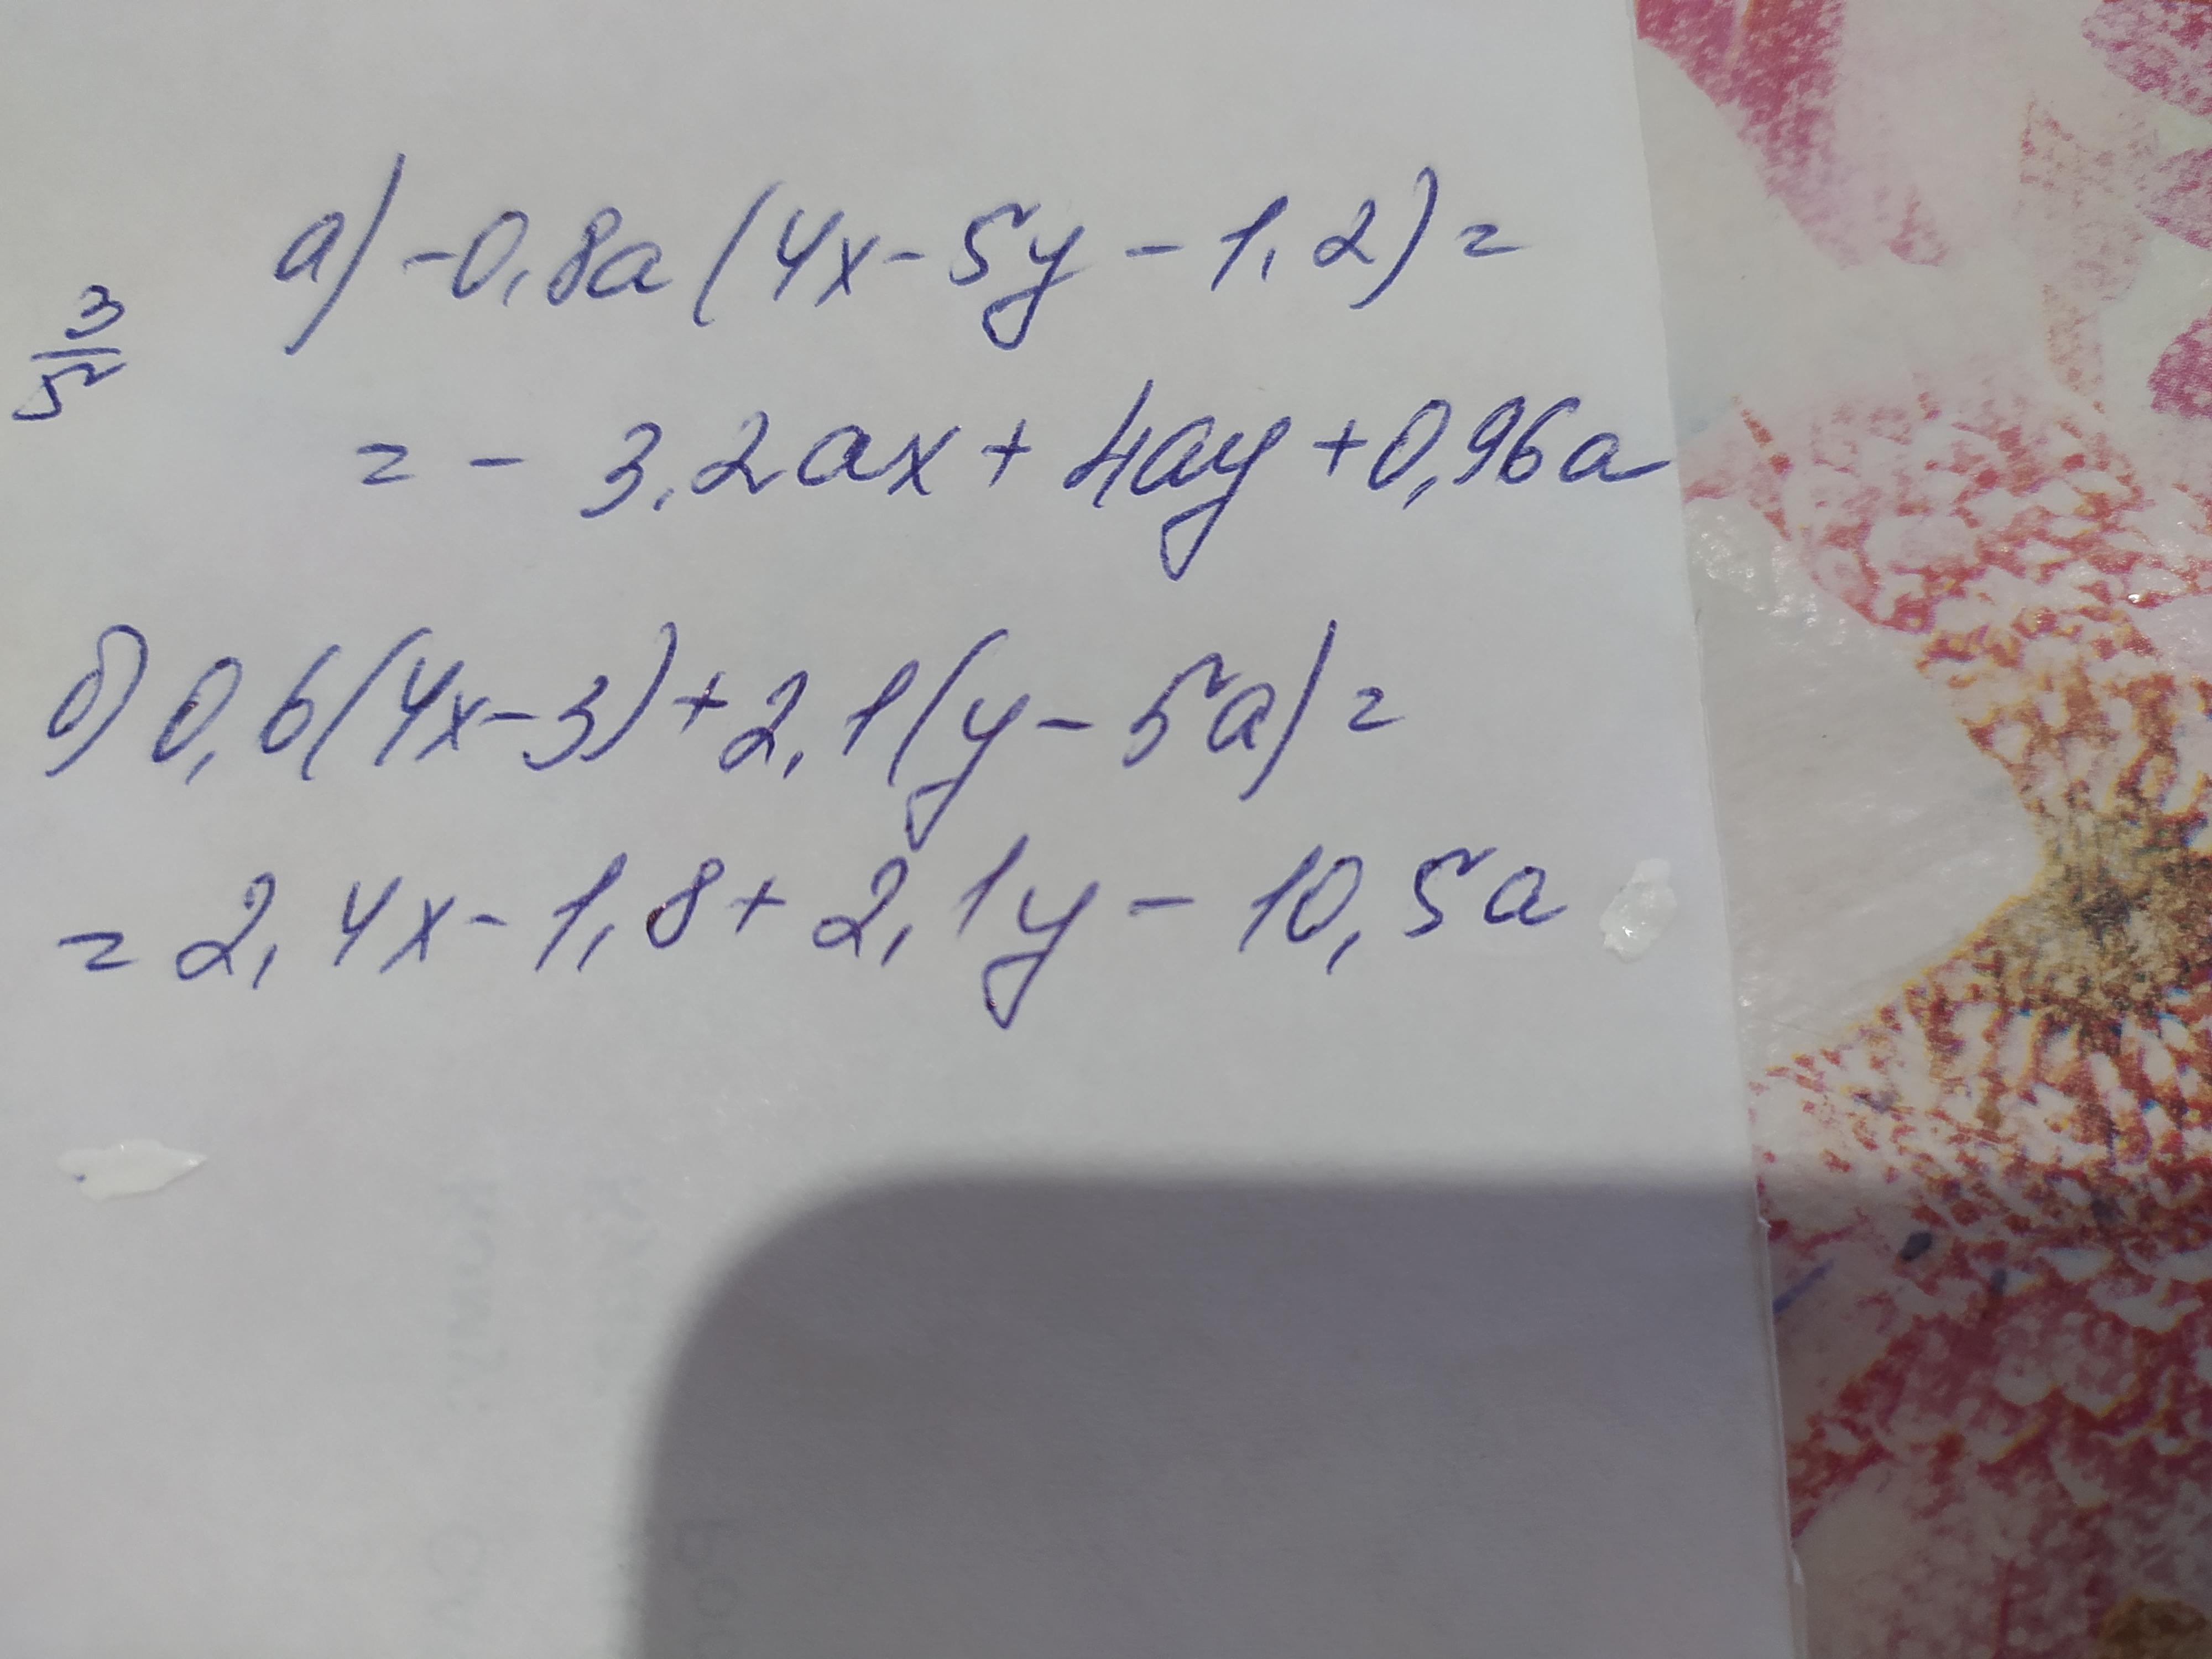 а) -0,8a(4x-5y-1,2)=
3/5
= - 3,2ax + 4ay + 0,96a
б) 0,6(4x-3)+2,1(y-5a)=
= 2,4x-1,8+2,1y-10,5a